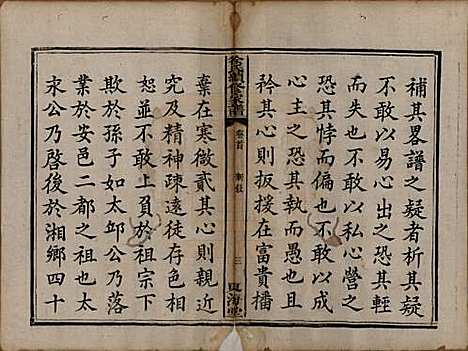 補其畧譜之疑者析其疑
不敢以易心之恐其輕
而失也不敢以私心營之
恐其悖而偏也不敢以成
心主之恐其執而愚也且
矜其心則扳援在富貴播
卷首
三
棄在寒微貳其心則親近
究及精神疎遠徒存色相
恕並不敢上負於祖宗下
欺於孫子如太邱公乃落
業於安邑二都之祖也太
求公乃啓後於湘鄉四十